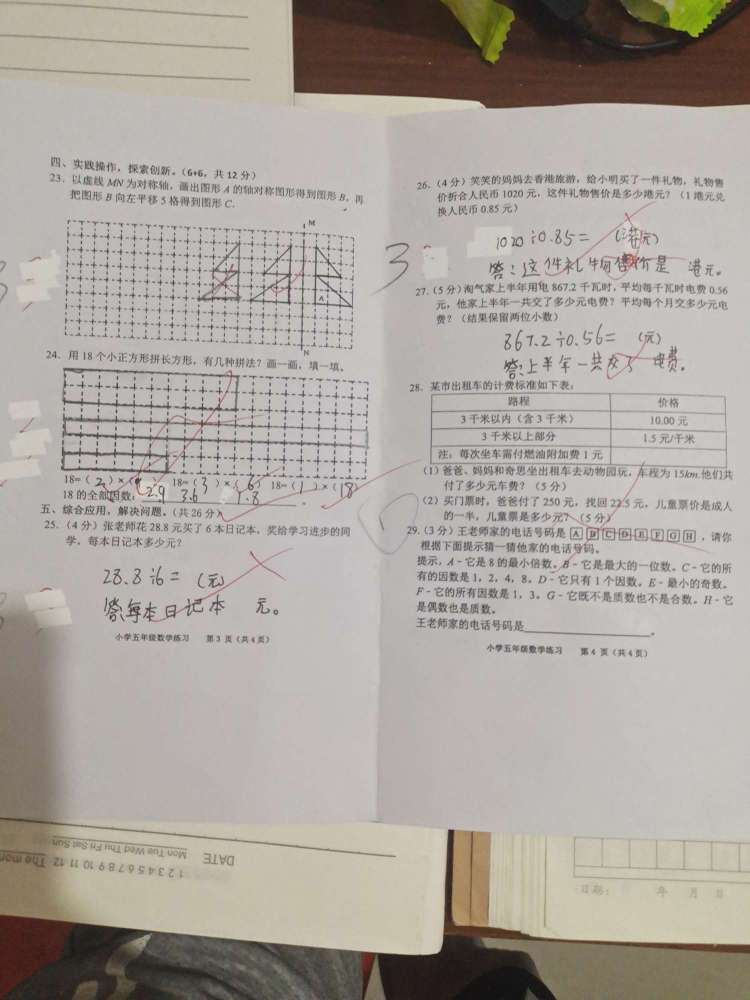 四、实践操作，探索创新。（6+6，共 12 分）
23．以虚线 MN 为对称轴，画出图形 A 的轴对称图形得到图形 B，再
把图形 B 向左平移 5 格得到图形 C．
M
A
N
24．用 18 个小正方形拼长方形，有几种拼法？画一画，填一填。
18=（ 2 ）×（ 9 18=（ 3 ）×（ 6 ）18=（ 1 ）×（ 18 ）
18 的全部因数： 2.9 3.6 1.8
五、综合应用，解决问题。（共 26 分）
25．（4 分）张老师花 28.8 元买了 6 本日记本，奖给学习进步的同
学，每本日记本多少元？
28.8÷6= （元）
答:每本日记本 元。
小学五年级数学练习 第 3 页（共 4 页）
3
26．（4 分）笑笑的妈妈去香港旅游，给小明买了一件礼物，礼物售
价折合人民币 1020 元，这件礼物售价是多少港元？（1 港元兑
换人民币 0.85 元）
1020÷0.85= （港元）
答：这件礼物售价是 港元。
27．（5 分）淘气家上半年用电 867.2 千瓦时，平均每千瓦时电费 0.56
元，他家上半年一共交了多少元电费？平均每个月交多少元电
费？（结果保留两位小数）
867.2÷0.56= （元）
答：上半年一共交了 电费。
28．某市出租车的计费标准如下表：
路程 价格
3 千米以内（含 3 千米） 10.00 元
3 千米以上部分 1.5 元/千米
注：每次坐车需付燃油附加费 1 元
（1）爸爸、妈妈和奇思坐出租车去动物园玩，车程为 15km.他们共
付了多少元车费？（5 分）
（2）买门票时，爸爸付了 250 元，找回 22.5 元，儿童票价是成人
的一半，儿童票是多少元？（5 分）
29．（3 分）王老师家的电话号码是 A B C D E F G H ，请你
根据下面提示猜一猜他家的电话号码。
提示，A－它是 8 的最小倍数。B－它是最大的一位数。C－它的所
有的因数是 1，2，4，8。D－它只有 1 个因数。E－最小的奇数。
F－它的所有因数是 1，3。G－它既不是质数也不是合数。H－它
是偶数也是质数。
王老师家的电话号码是。
小学五年级数学练习 第 4 页（共 4 页）
DATE
Mon Tue Wed Thu Fri Sat Sun
1 2 3 4 5 6 7 8 9 10 11 12
日期： 年 月 日